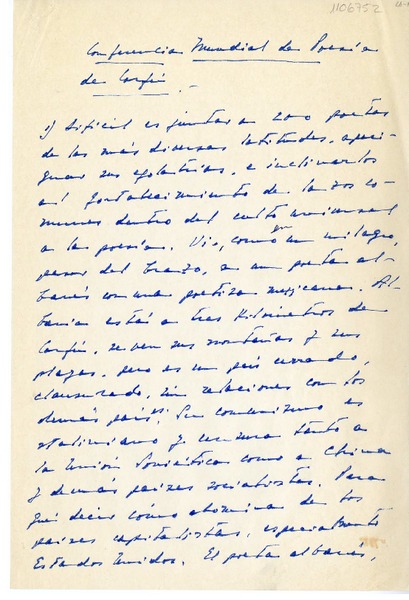 1106752
Conferencia Mundial de Poesía
de Corfú.-
1) Difícil es juntar a 200 poetas
de las más diversas latitudes, apaci-
guar sus egolatrías, e inclinarlos
al fortalecimiento de lazos co-
munes dentro del culto universal
a la poesía. Vi, como un milagro,
pasar del brazo, a un poeta al-
banés con una poetiza mexicana. Al-
bania está a tres kilómetros de
Corfú, se ven sus montañas y sus
playas, pero es un país cerrado,
clausurado, sin relaciones con los
demás países. Su comunismo es
staliniano y censura tanto a
la Unión Soviética como a China
y demás países socialistas. Para
qué decir cómo abomina de los
países capitalistas, especialmente
Estados Unidos. El poeta albanés,